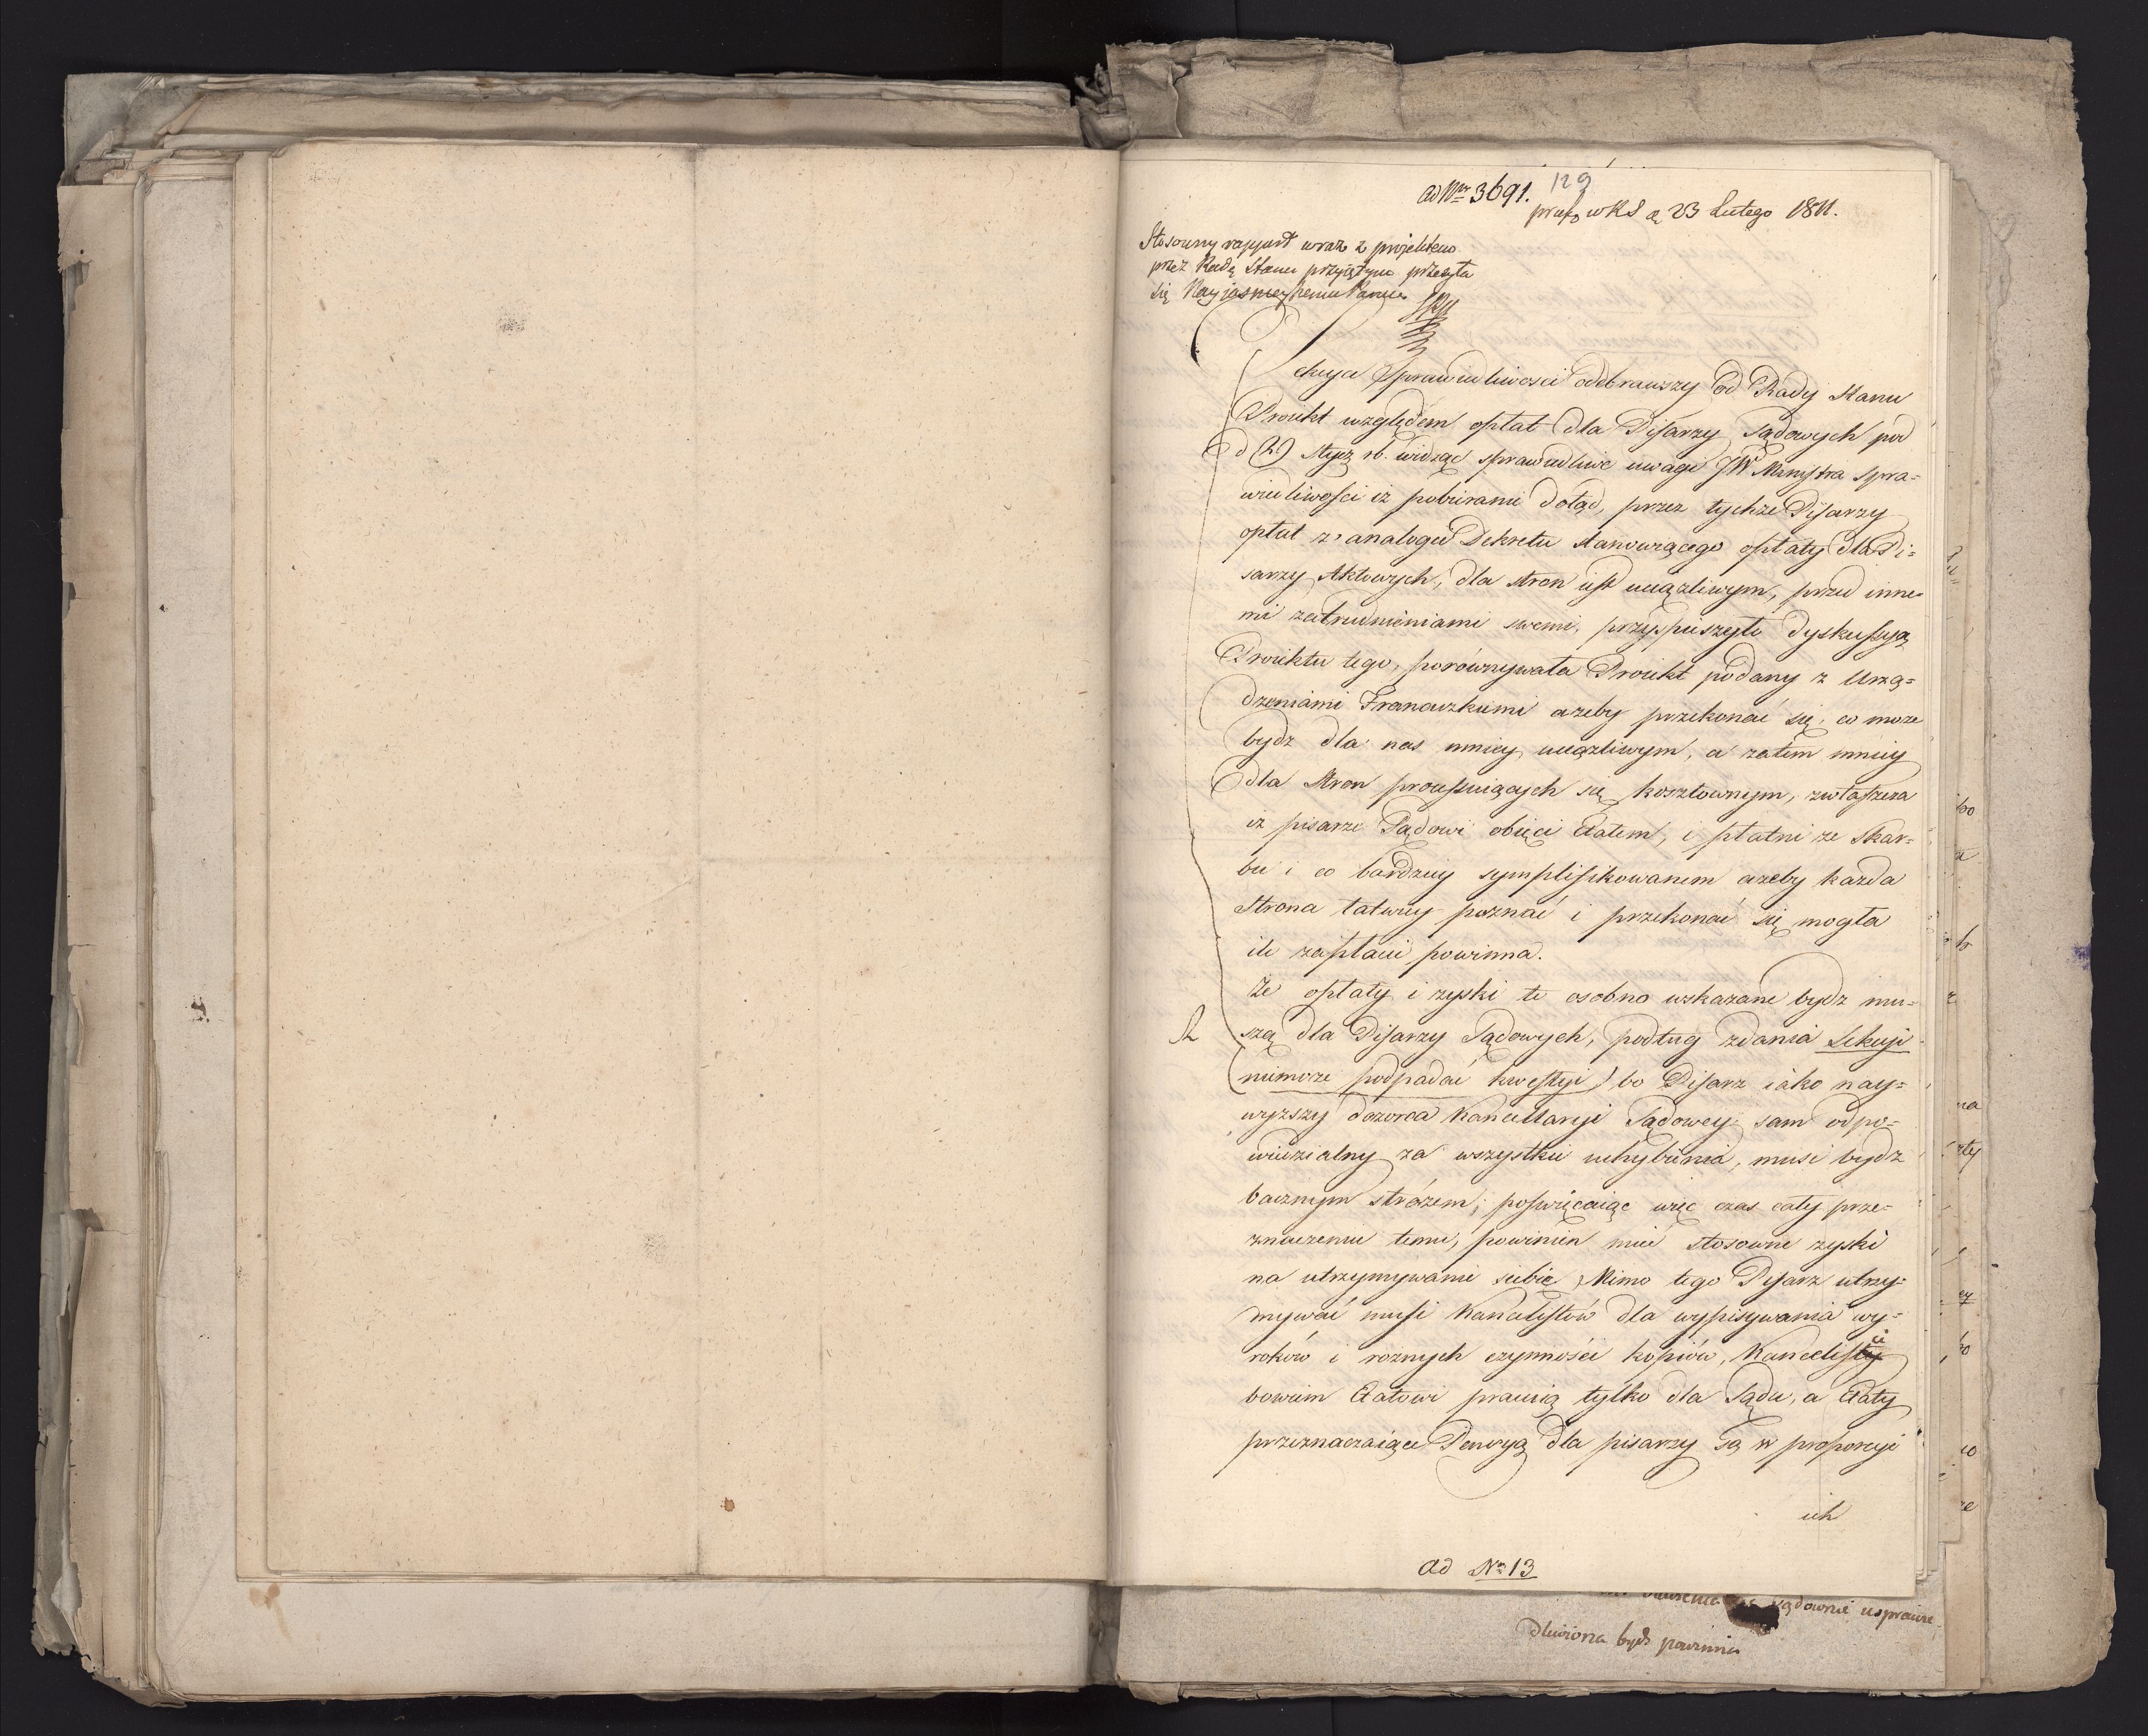 ad Nro 3691.
129
w RS d. 23 Lutego 1811.
Stosowny rapport wraz z projektem
przez Radę Stanu przyiętym przesyła
się Nayjasnieyszemu Panu
Sekcya Sprawiedliwosci odebrawszy od Rady Stanu
Proiekt względem opłat dla Pisarzy Sądowych pod
d. stycz. rb. widząc sprawiedliwe uwagi JW Ministra Spra=
wiedliwości iż pobieranie dotąd, przez tychże Pisarzy
opłat z analogii Dekretu stanowiącego opłaty dla Pi=
sarzy Aktowych, dla stron iest uciążliwym, przed inne=
mi zatrudnieniami swemi, przyspieszyła dyskussyą
Proiektu tego, porównywała Proiekt podany z Urzą=
dzeniami Francuzkiemi ażeby przekonać się, co może
bydz dla nas mniey uciążliwym, a zatem mniey
dla stron processuiących się kosztownym, zwłaszcza
iż pisarze Sądowi obięci Etatem, i płatni ze Skar=
bu i co bardziey symplifikowanem ażeby każda
Strona łatwiey poznać i przekonać się mogła
ile zapłacić powinna.
Że opłaty i zyski te osobno wskazane bydz mu=
szą dla Pisarzy Sądowych, podług zdania Sekcyi
(niemoże podpadać kwestyi) bo Pisarz iako nay=
wyższy dozorca Kancellaryi Sądowey sam odpo=
wiedzialny za wszystkie uchybienia, musi bydz
bacznym stróżem; poswięcaiąc więc czas cały prze=
znaczeniu temu, powinien mieć stosowne zyski
na utrzymywanie siebie, Mimo tego Pisarz utrzy=
mywać musi Kancelistów dla wypisywania wy=
roków i różnych czynności kopiów, Kancelisci
bowiem Etatowi pracuią tylko dla Sądu, a Etaty
przeznaczaiące Pensyą dla pisarzy są w proporcyi
ich
ad No 13
sądownie usprawie
dliwiona bydź powinna